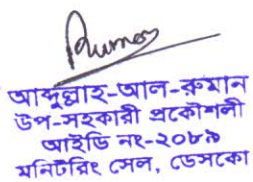 Rumon
আব্দুল্লাহ-আল-রুমান
উপ-সহকারী প্রকৌশলী
আইডি নং-২০৮৯
মনিটরিং সেল, ডেসকো